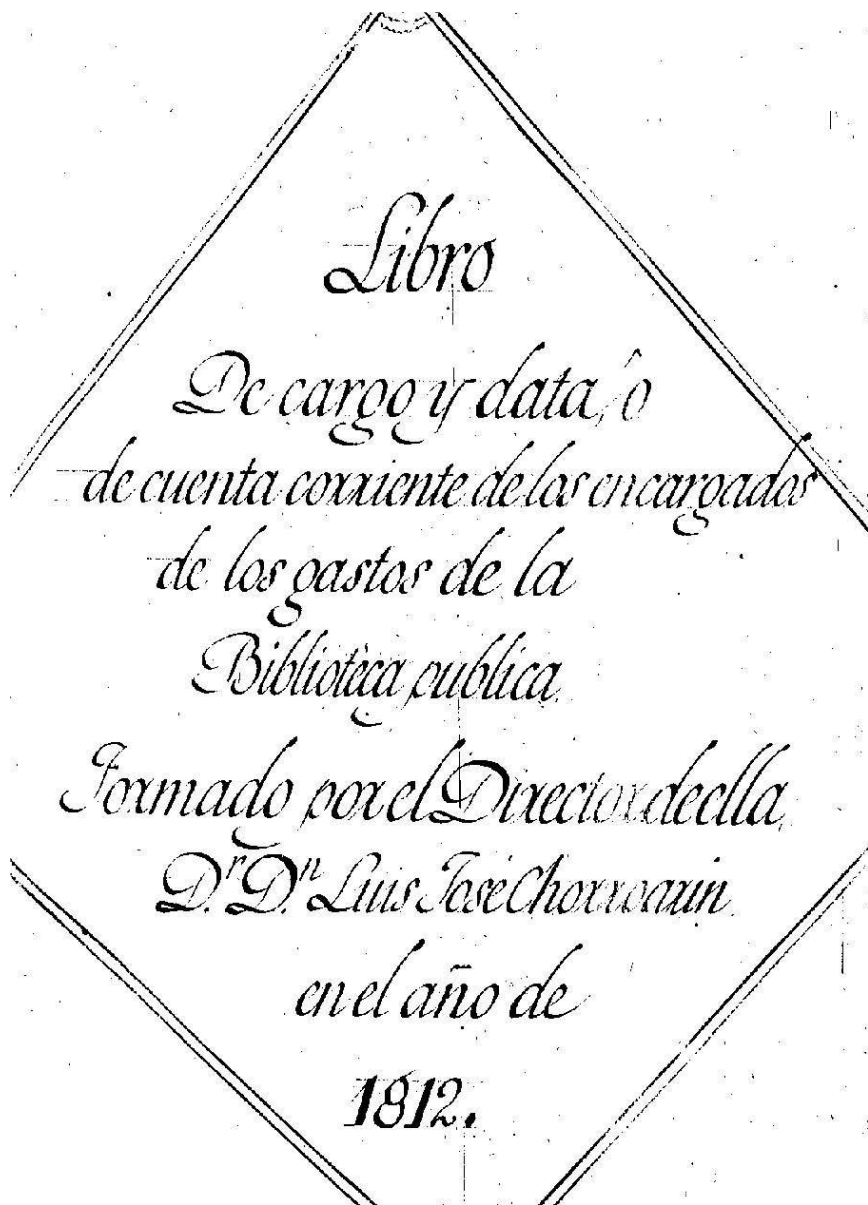 Libro
De cargo y data, ò
de cuenta corriente de los encargados
de los gastos de la
Bibliotèca publica
Formado por el Director de ella
D.r D.n Luis José Chorroarin
en el año de
1812.